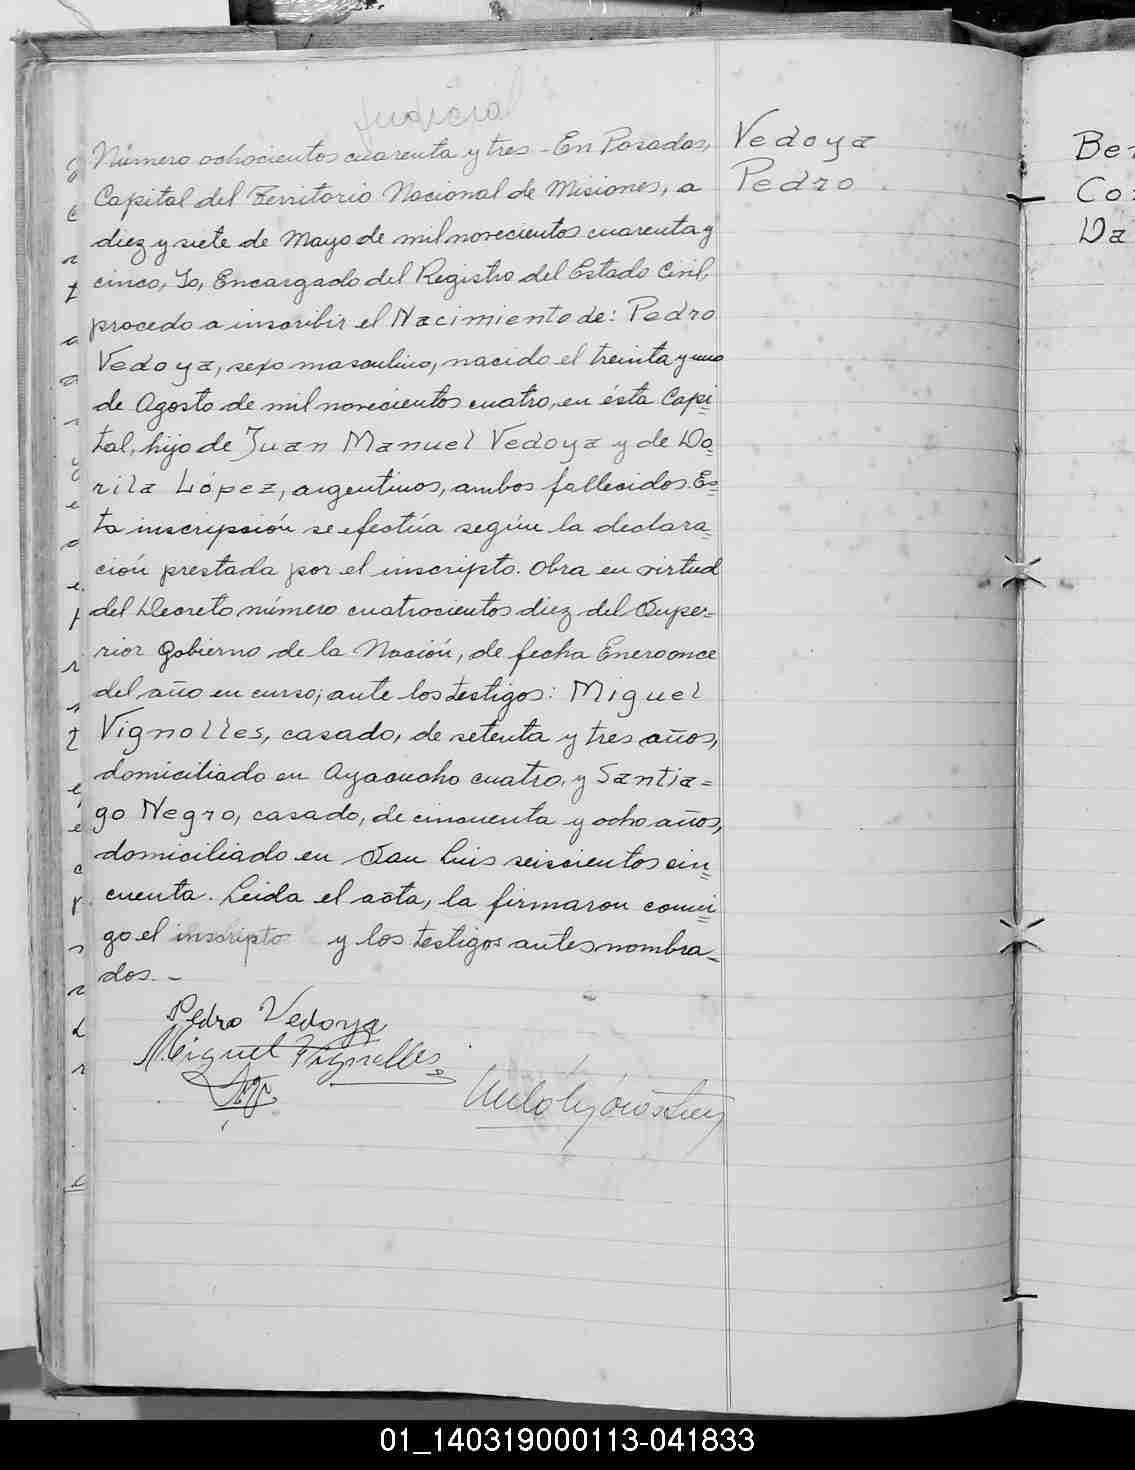 Judicial
Número ochocientos cuarenta y tres - En Posadas,
Capital del Territorio Nacional de Misiones, a
diez y siete de Mayo de mil novecientos cuarenta y
cinco, Yo, Encargado del Registro del Estado Civil,
procedo a inscribir el Nacimiento de: Pedro
Vedoya, sexo masculino, nacido el treinta y uno
de Agosto de mil novecientos cuatro, en ésta Capi=
tal, hijo de Juan Manuel Vedoya y de Do=
rila López, argentinos, ambos fallecidos. Es=
ta inscripción se efectúa según la declara=
ción prestada por el inscripto. Obra en virtud
del Decreto número cuatrocientos diez del Supe=
rior Gobierno de la Nación, de fecha Enero once
del año en curso; ante los testigos: Miguel
Vignolles, casado, de setenta y tres años,
domiciliado en Ayacucho cuatro, y Santia=
go Negro, casado, de cincuenta y ocho años,
domiciliado en San Luis seiscientos cin=
cuenta. Leida el acta, la firmaron conmi=
go el inscripto y los testigos antes nombra=
dos. -
Pedro Vedoya
Miguel Vignolles
Vedoya
Pedro
Be
Co
Da
01_140319000113-041833